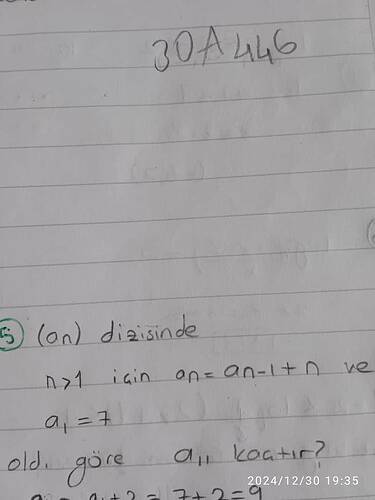 30A446
5 (an) dizisinde
n>1 için an = an-1 + n ve
a₁ = 7
old. göre a₁₁ kaçtır?
2024/12/30 19:35
a₂ = a₁ + 2 = 7 + 2 = 9